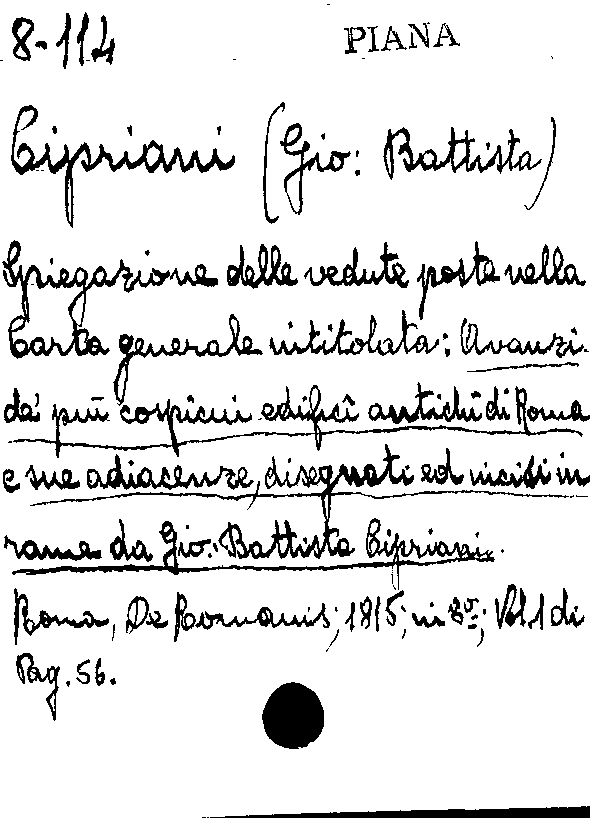 8-114 PIANA
Cipriani (Gio: Battista)
Spiegazione delle vedute poste nella
Carta generale intitolata: Avanzi
da' più cospicui edificî antichi di Roma
e sue adiacenze, disegnati ed incisi in
rame da Gio: Battista Cipriani.
Roma, De Romanis; 1815; in 8º; Vol. 1 di
Pag. 56.